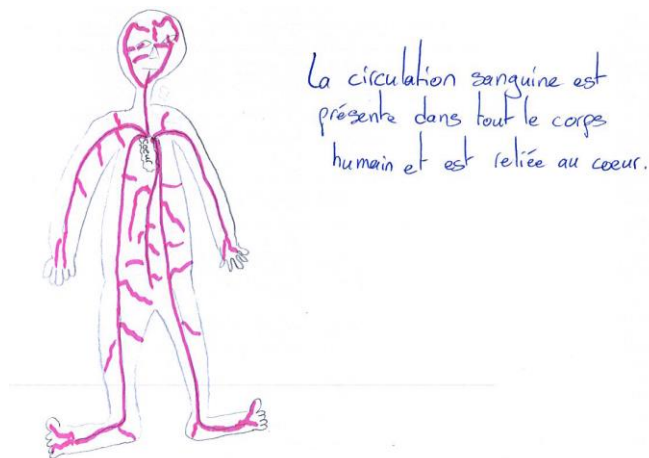 La circulation sanguine est
présente dans tout le corps
humain et est reliée au coeur.
coeur